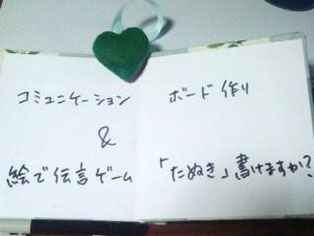 コミュニケーション ボード作り
&
絵で伝言ゲーム 「たぬき」書けますか?